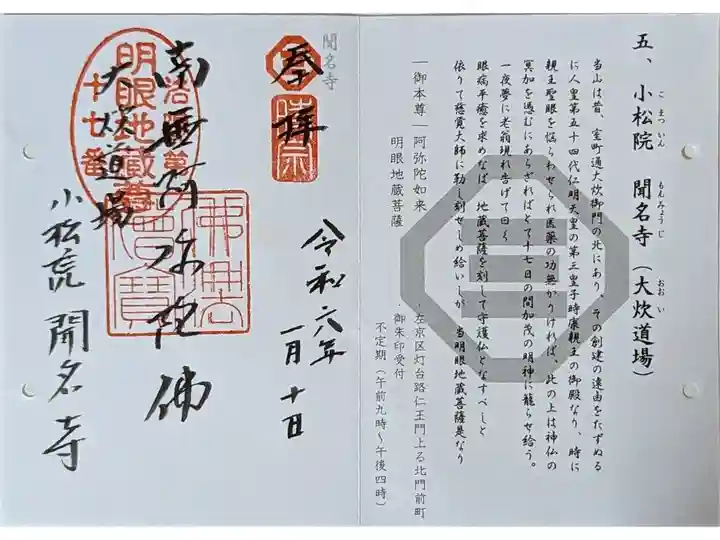 五、小松院 聞名寺（大炊道場）
こまついん もんみょうじ おおい
当山は昔、室町通大炊御門の北にあり、その創建の遠由をたずぬる
に人皇第五十四代仁明天皇の第三皇子時康親王の御殿なり、時に
親王聖眼を悩らわせられ医薬の功無かりければ、此の上は神仏の
冥加を憑むにあらざればとて十七日の間加茂の明神に籠らせ給う。
一夜夢に老翁現れ告げて曰く
眼病平癒を求めなば、地蔵菩薩を刻して守護仏となすべしと
依りて慈覚大師に勅し刻せしめ給いしが、当明眼地蔵菩薩是なり
―御本尊―阿弥陀如来
明眼地蔵菩薩
・左京区灯台路仁王門上る北門前町
・御朱印受付
不定期（午前九時〜午後四時）
聞名寺
奉拝
令和六年
一月十日
南無阿弥陀佛
大炊道場
小松院 聞名寺
明眼地蔵尊
十七番
佛法僧寶